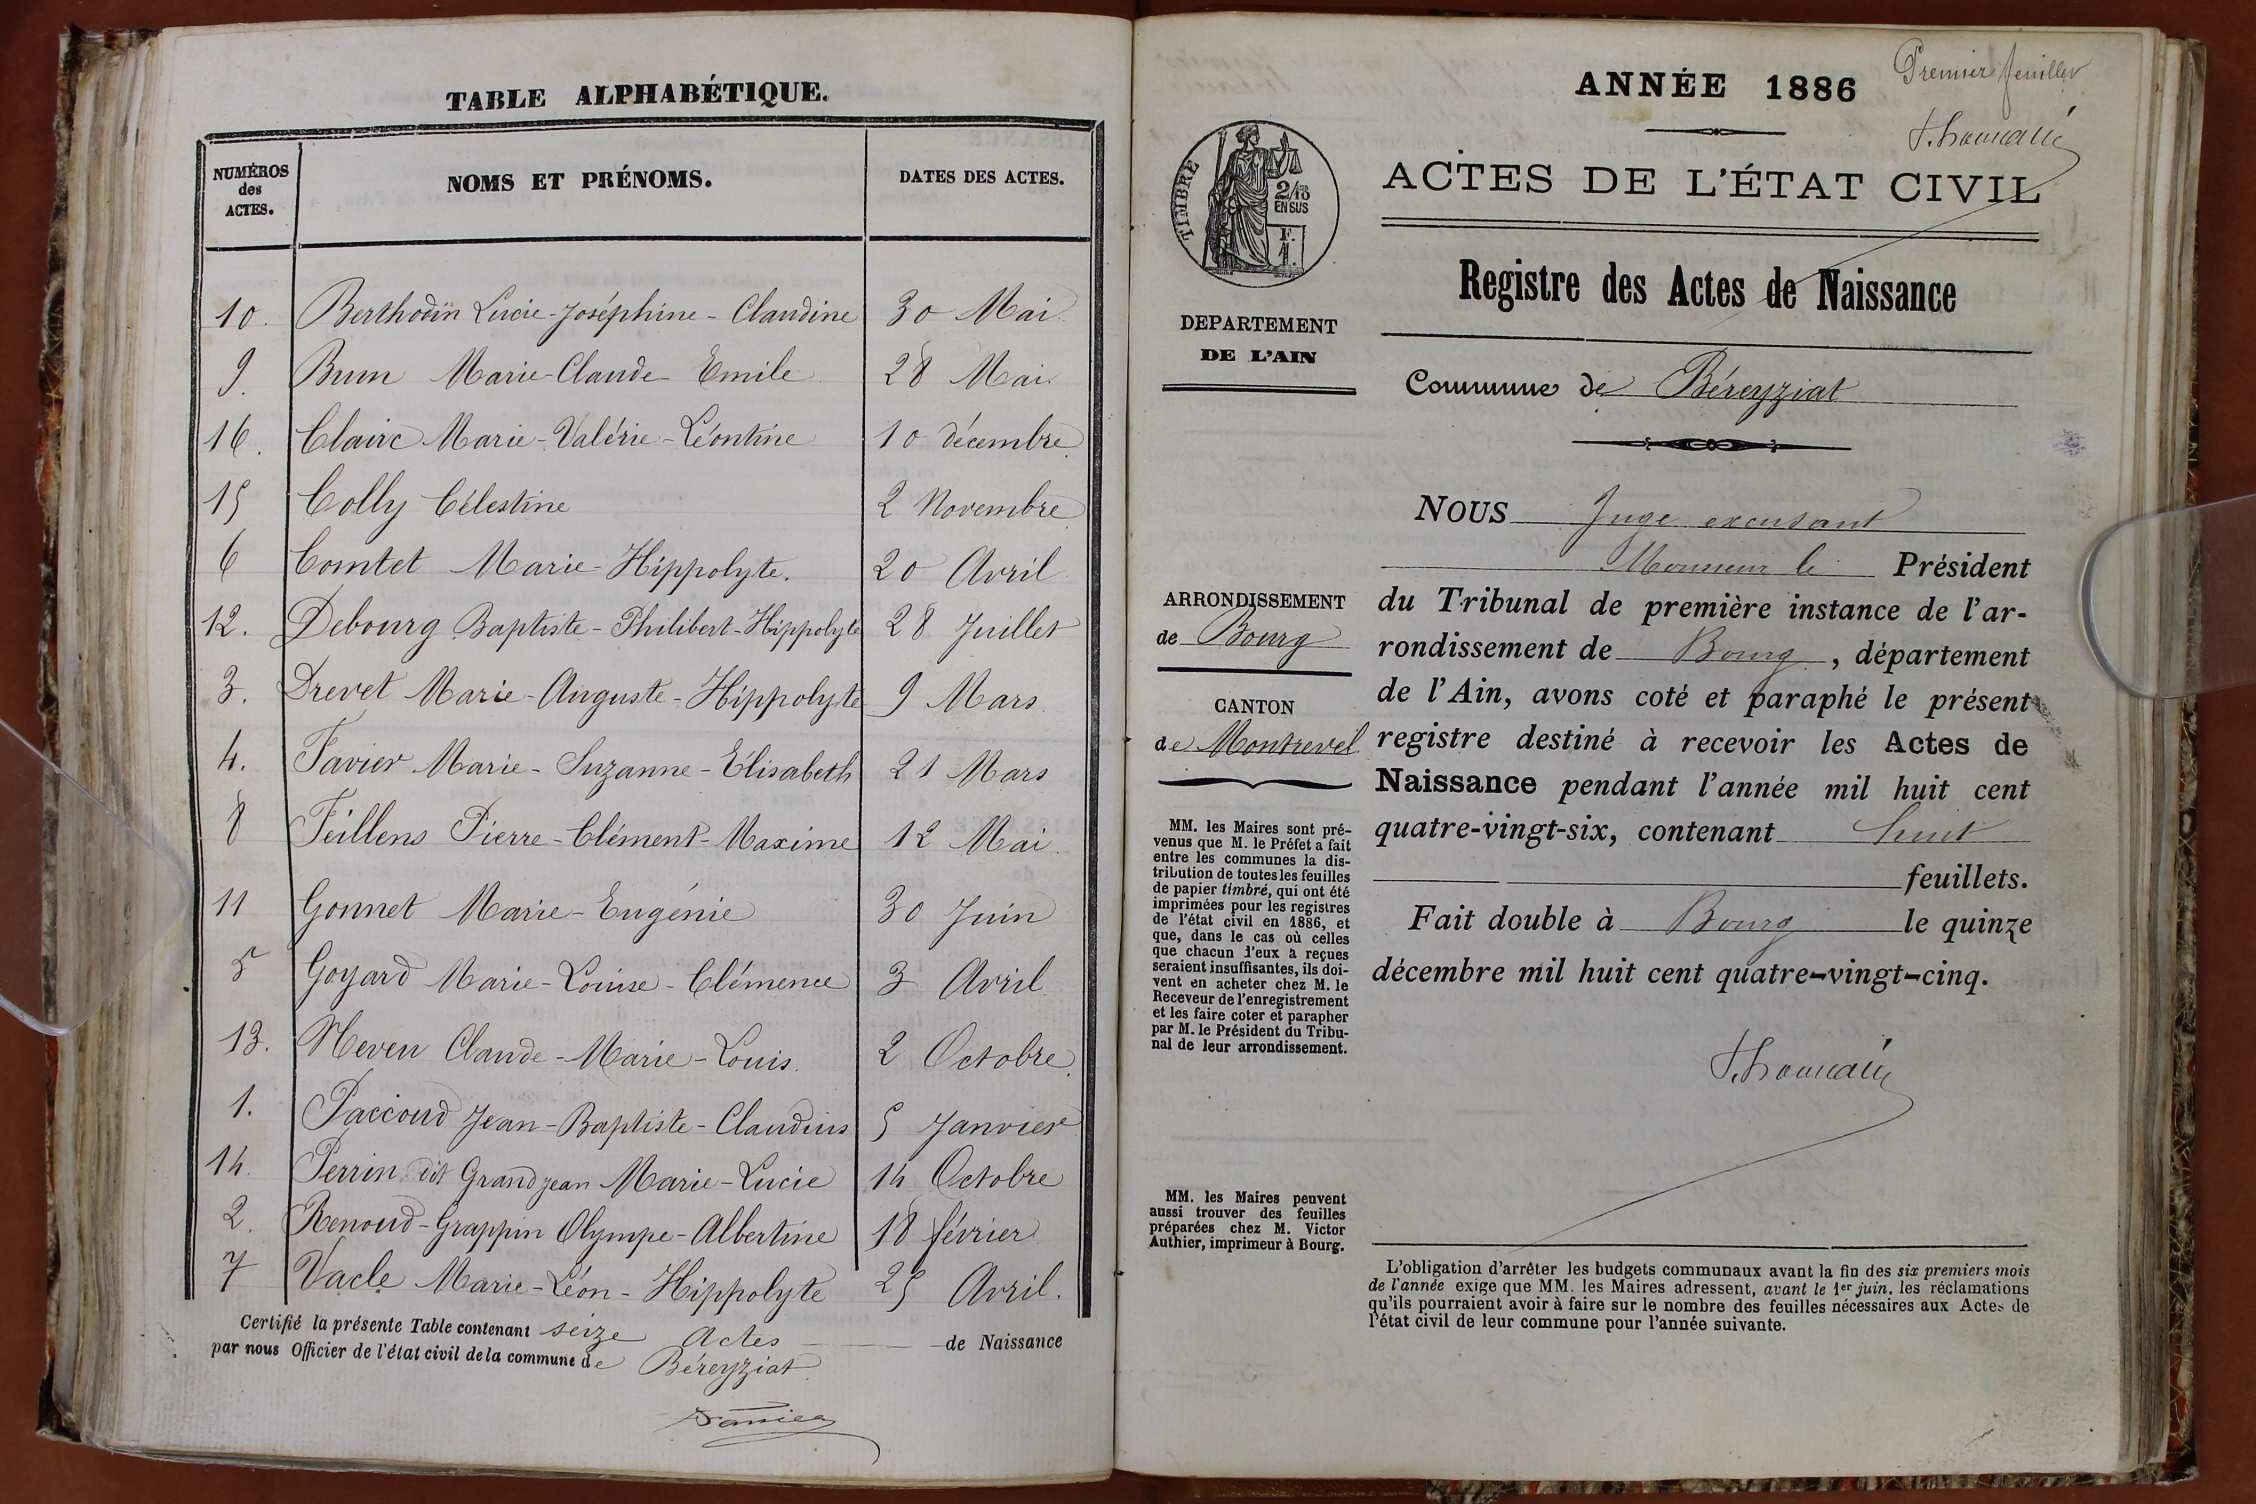 TABLE ALPHABÉTIQUE.
NUMÉROS des ACTES.
NOMS ET PRÉNOMS.
DATES DES ACTES.
10. Berthodin Lucie-Joséphine-Claudine 30 Mai
9. Brun Marie-Claude Emile 28 Mai
16. Clairc Marie-Valérie-Léontine 10 décembre
15 Colly Célestine 2 Novembre
6 Comtet Marie-Hippolyte. 20 Avril
12. Debourg Baptiste-Philibert-Hippolyte 28 Juillet
3. Drevet Marie-Auguste-Hippolyte 9 Mars
4. Favier Marie-Suzanne-Élisabeth 21 Mars
8 Feillens Pierre-Clément-Maxime 12 Mai
11 Gonnet Marie-Eugénie 30 Juin
5 Goyard Marie-Louise-Clémence 3 Avril
13. Neveu Claude-Marie-Louis. 2 Octobre
1. Paccoud Jean-Baptiste-Claudius 5 Janvier
14. Perrin dit Grandjean Marie-Lucie 14 Octobre
2. Renoud-Grappin Olympe-Albertine 18 février
7 Vacle Marie-Léon-Hippolyte 25 Avril.
Certifié la présente Table contenant seize Actes de Naissance
par nous Officier de l'état civil de la commune de Béreyziat
Premier feuillet
ANNÉE 1886
ACTES DE L'ÉTAT CIVIL
TIMBRE
2/10 EN SUS
Registre des Actes de Naissance
DEPARTEMENT
DE L'AIN
Commune de Béreyziat
NOUS Juge excusant
Monsieur le Président
du Tribunal de première instance de l'ar-
rondissement de Bourg, département
de l'Ain, avons coté et paraphé le présent
registre destiné à recevoir les Actes de
Naissance pendant l'année mil huit cent
quatre-vingt-six, contenant huit
feuillets.
Fait double à Bourg le quinze
décembre mil huit cent quatre-vingt-cinq.
ARRONDISSEMENT
de Bourg
CANTON
de Montrevel
MM. les Maires sont pré-
venus que M. le Préfet a fait
entre les communes la dis-
tribution de toutes les feuilles
de papier timbré, qui ont été
imprimées pour les registres
de l'état civil en 1886, et
que, dans le cas où celles
que chacun d'eux a reçues
seraient insuffisantes, ils doi-
vent en acheter chez M. le
Receveur de l'enregistrement
et les faire coter et parapher
par M. le Président du Tribu-
nal de leur arrondissement.
MM. les Maires peuvent
aussi trouver des feuilles
préparées chez M. Victor
Authier, imprimeur à Bourg.
L'obligation d'arrêter les budgets communaux avant la fin des six premiers mois
de l'année exige que MM. les Maires adressent, avant le 1er juin, les réclamations
qu'ils pourraient avoir à faire sur le nombre des feuilles nécessaires aux Actes de
l'état civil de leur commune pour l'année suivante.